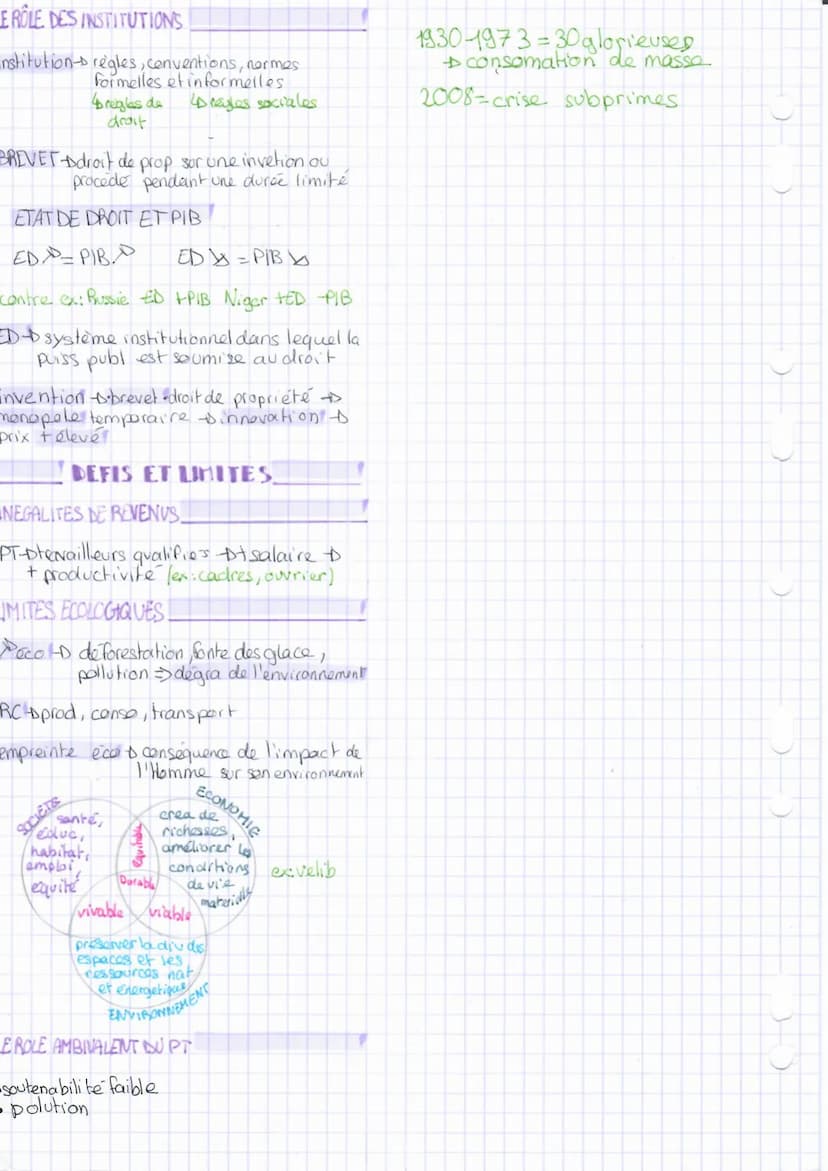 E RÔLE DES INSTITUTIONS
nstitution → règles, conventions, normes
formelles et informelles
↳ règles de ↳ règles sociales
droit
BREVET → droit de prop sur une invetion ou
procédé pendant une durée limité
ETAT DE DROIT ET PIB
ED ↗ = PIB ↗ ED ↘ = PIB ↘
contre ex: Russie -ED +PIB Niger +ED -PIB
ED → système institutionnel dans lequel la
puiss publ est soumise au droit
invention → brevet → droit de propriété →
monopole temporaire → innovation →
prix + élevé
DEFIS ET LIMITES
NEGALITES DE REVENUS
PT → travailleurs qualifiés → + salaire →
+ productivité (ex: cadres, ouvrier)
IMITES ECOLOGIQUES
↗ éco → déforestation, fonte des glace,
pollution ⇒ dégra de l'environnement
RC → prod, conso, transport
empreinte éco → conséquence de l'impact de
l'Homme sur son environnement
SOCIÉTÉ
santé,
éduc,
habitat,
emploi,
equité
ÉCONOMIE
créa de
richesses,
améliorer les
conditions
de vie
matérielle
équitable
Durable
vivable viable
ex: velib
préserver la div des
espaces et les
ressources nat
et énergétiques
ENVIRONNEMENT
E ROLE AMBIVALENT DU PT
soutenabilité faible
• polution
1930-1973 = 30 glorieuses
→ consomation de masse
2008 = crise subprimes